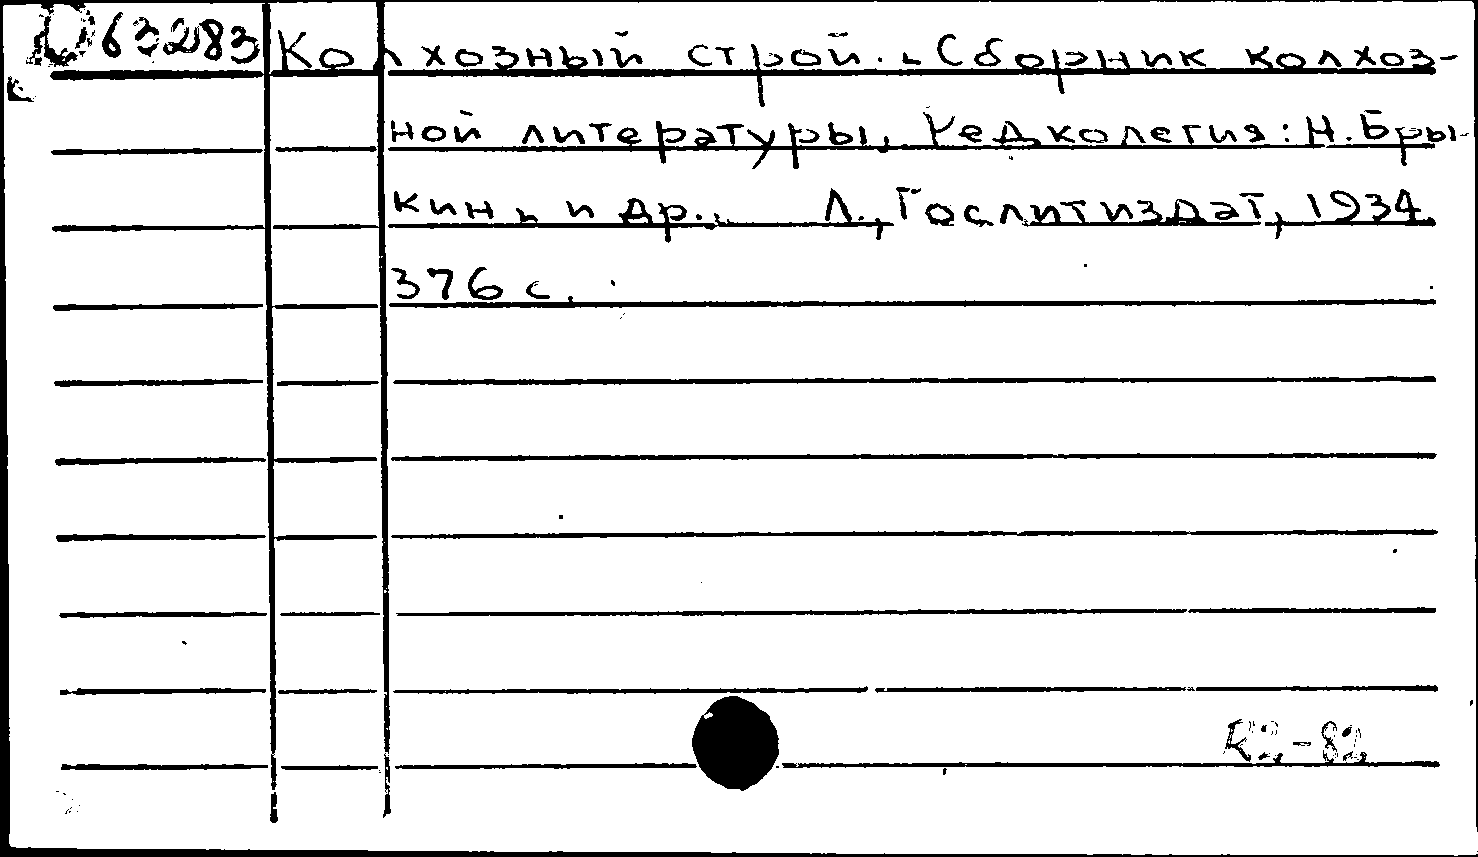 D63283 Колхозный строй. Сборник колхоз-
ной литературы, Редколегия: Н. Бры-
кин, и др., Л., Гослитиздат, 1934.
376 с.
R2-82